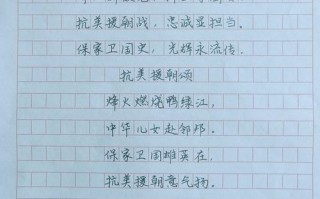 抗美援朝战，忠诚显担当。
保家卫国史，光辉永流传。
抗美援朝颂
烽火燃成鸭绿江，
中华儿女赴邻邦。
保家卫国雄英在，
抗美援朝意气扬。